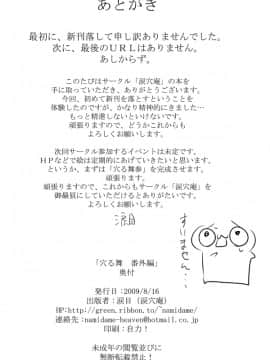 あとがき
最初に、新刊落して申し訳ありませんでした。
次に、最後のURLはありません。
あしからず。
このたびはサークル「涙穴庵」の本を
手に取っていただき、ありがとうございます。
今回、初めて新刊を落とすということを
体験したのですが、かなり精神的にきました…
もっと精進しないといけないです。
頑張りますので、どうかこれからも
よろしくお願いします。
次回サークル参加するイベントは未定です。
HPなどで絵は定期的にあげていきたいと思います。
というか、まずは「穴る舞参」を完成させます。
頑張ります。
頑張りますので、これからもサークル「涙穴庵」を
御贔屓にしていただけるとありがたいです。
よろしくお願いします。
涙目
すいません…
「穴る舞 番外編」
奥付
発行日:2009/8/16
出版者:涙目(涙穴庵)
HP:http://green.ribbon.to/~namidame/
連絡先:namidame-heaven@hotmail.co.jp
印刷:自力!
未成年の閲覧並びに
無断転載禁止!